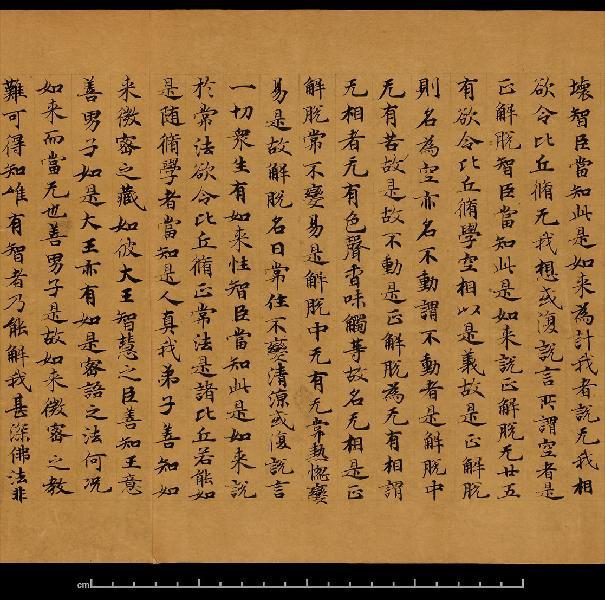 壞智臣當知此是如来為計我者說无我相
欲令比丘脩无我想或復說言所謂空者是
正解脫智臣當知此是如来說正解脫无廿五
有欲令比丘脩學空相以是義故是正解脫
則名為空亦名不動謂不動者是解脫中
无有苦故是故不動是正解脫為无有相謂
无相者无有色聲香味觸等故名无相是正
解脫常不變易是解脫中无有无常熱惱變
易是故解脫名曰常住不變清涼或復說言
一切衆生有如来性智臣當知此是如来說
於常法欲令比丘脩正常法是諸比丘若能如
是随脩學者當知是人真我弟子善知如
来微密之藏如彼大王智慧之臣善知王意
善男子如是大王亦有如是密語之法何況
如来而當无也善男子是故如来微密之教
難可得知唯有智者乃能解我甚深佛法非
cm